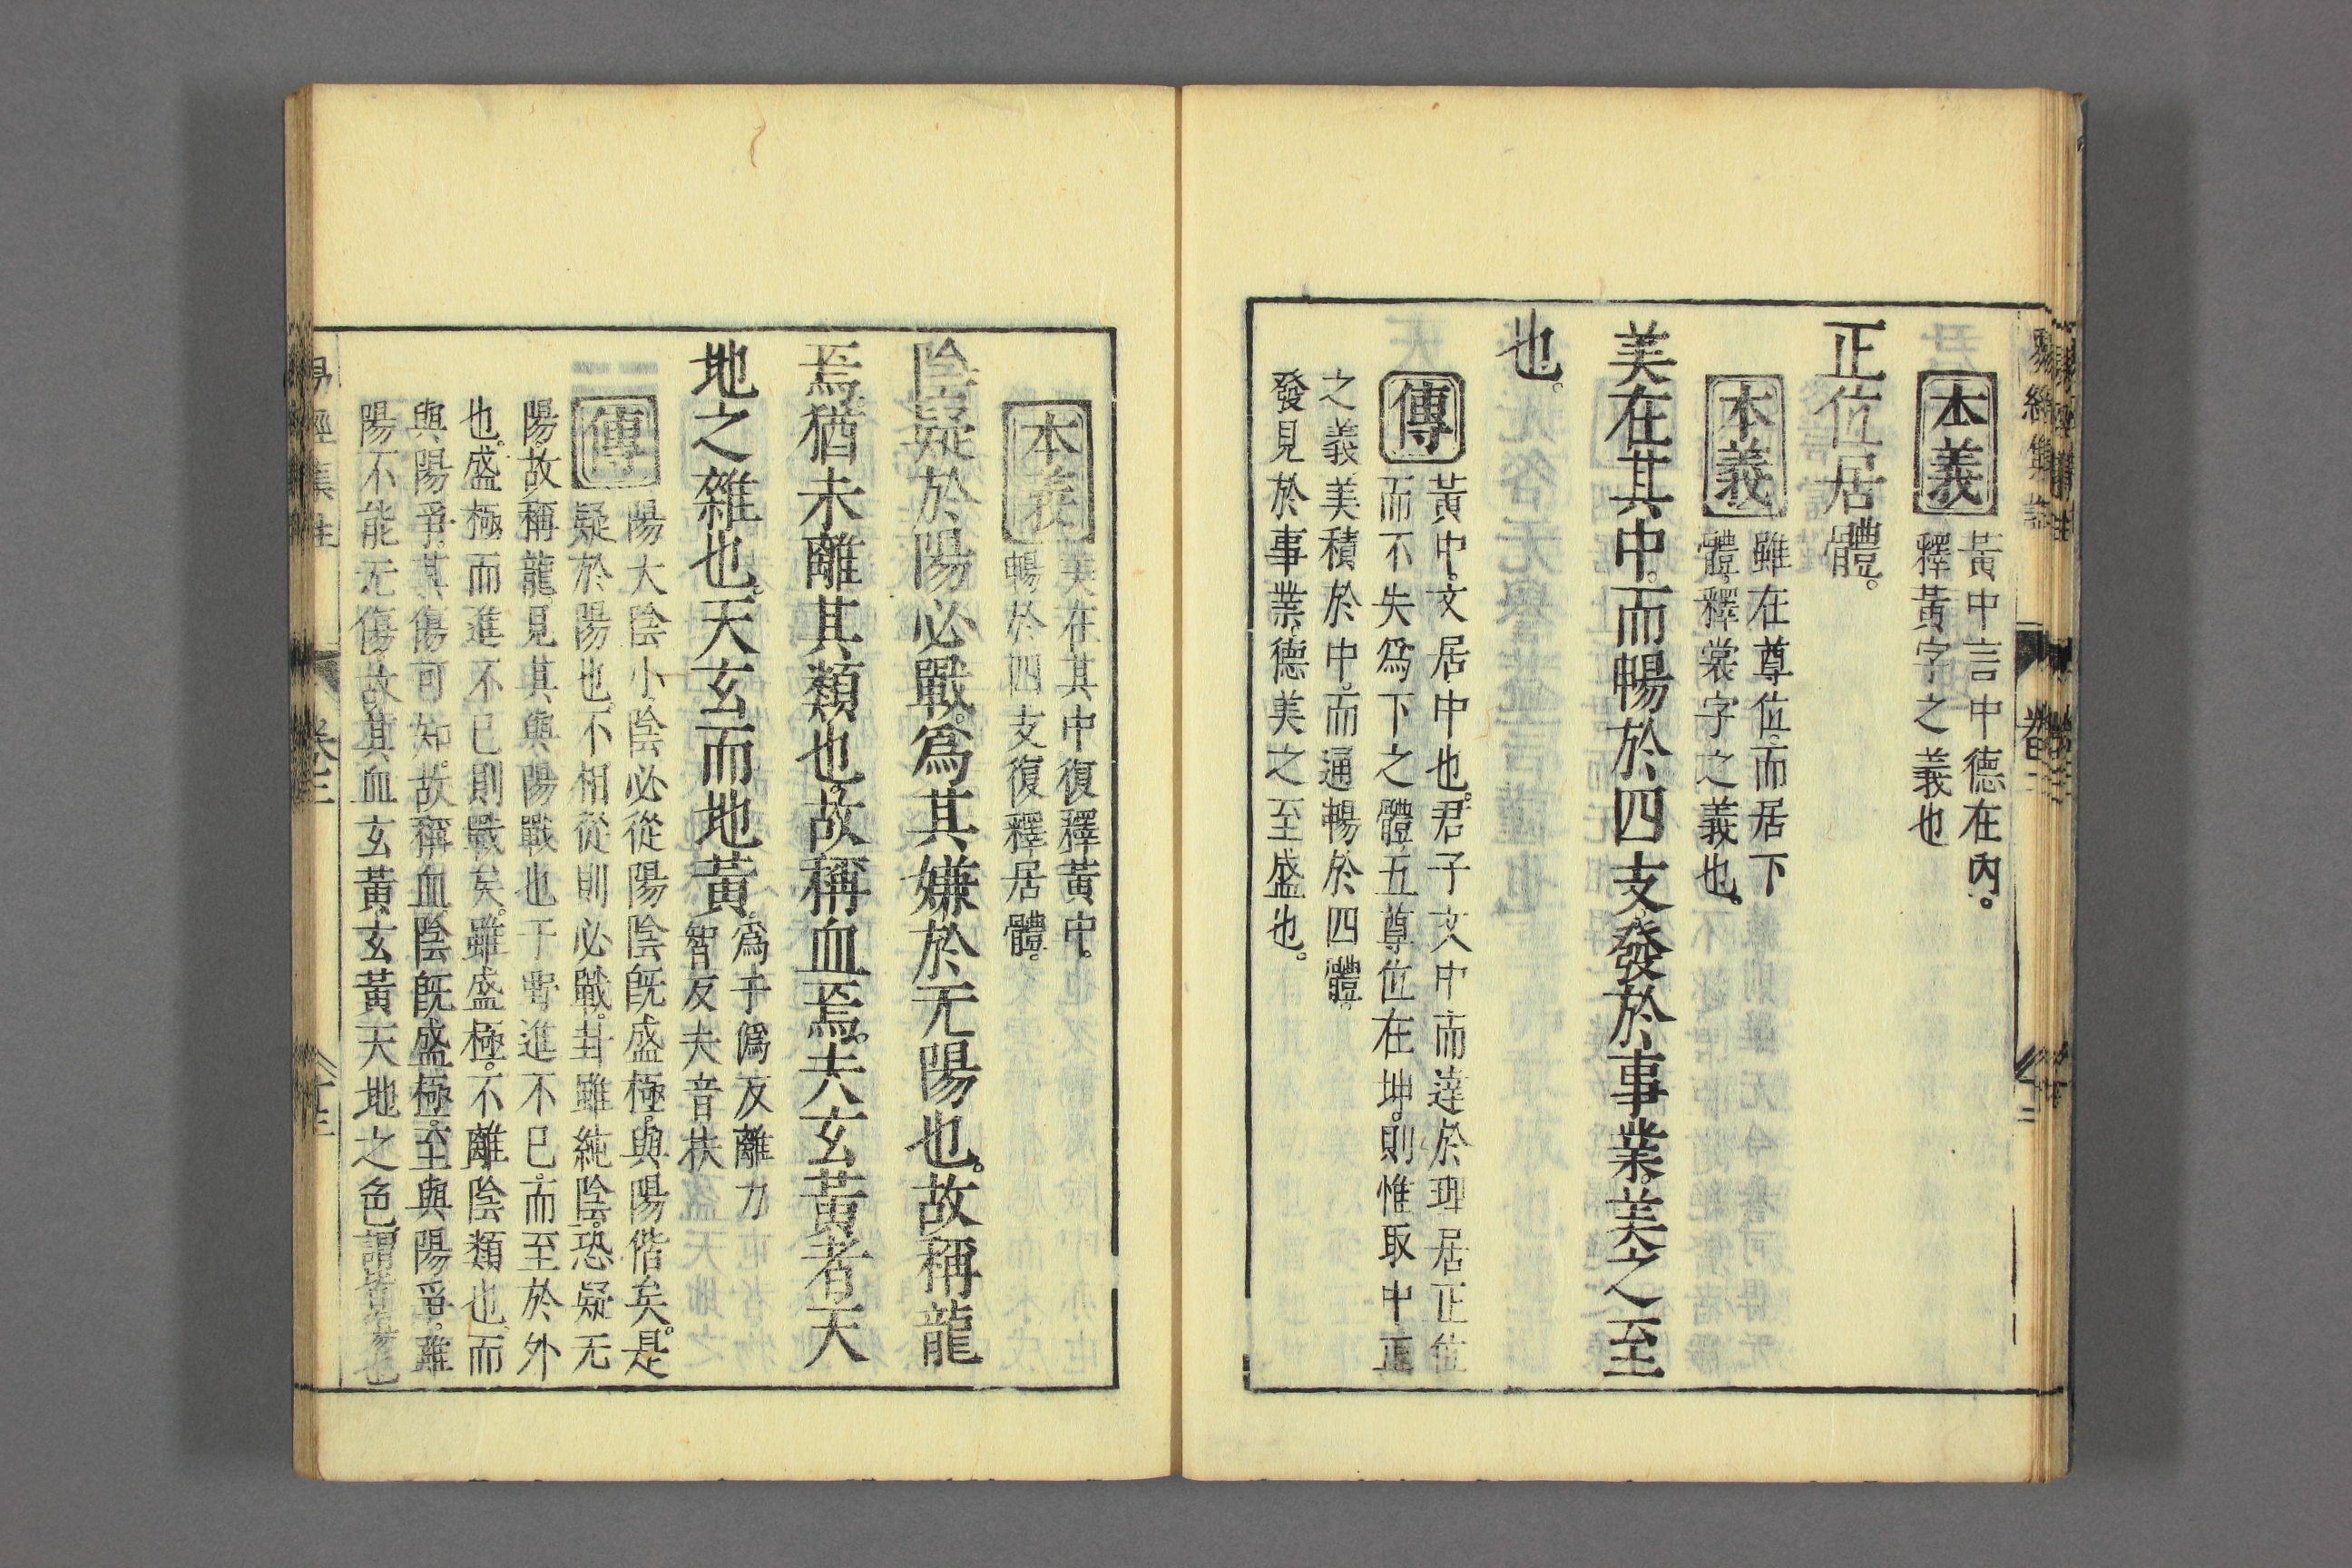 本義
黃中言中德在內。
釋黃字之義也
正位居體。
本義
雖在尊位。而居下
體。釋裳字之義也。
美在其中。而暢於四支。發於事業。美之至
也。
傳
黃中。文居中也。君子文中而達於理。居正位
而不失爲下之體。五尊位。在坤。則惟取中正
之義。美積於中。而通暢於四體。
發見於事業。德美之至盛也。
本義
美在其中復釋黃中。
暢於四支復釋居體。
陰疑於陽必戰。爲其嫌於无陽也。故稱龍
焉。猶未離其類也。故稱血焉。夫玄黃者。天
地之雜也。天玄而地黃。
爲于僞反離力
智反夫音扶
傳
陽大陰小。陰必從陽。陰旣盛極。與陽偕矣。是
疑於陽也。不相從則必戰。卦雖純陰。恐疑无
陽。故稱龍。見其與陽戰也。于野進不已。而至於外
也。盛極而進不已則戰矣。雖盛極。不離陰類也。而
與陽爭。其傷可知。故稱血。陰旣盛極。至與陽爭。雖
陽不能无傷。故其血玄黃。玄黃天地之色。謂皆傷也
易經集註
卷三